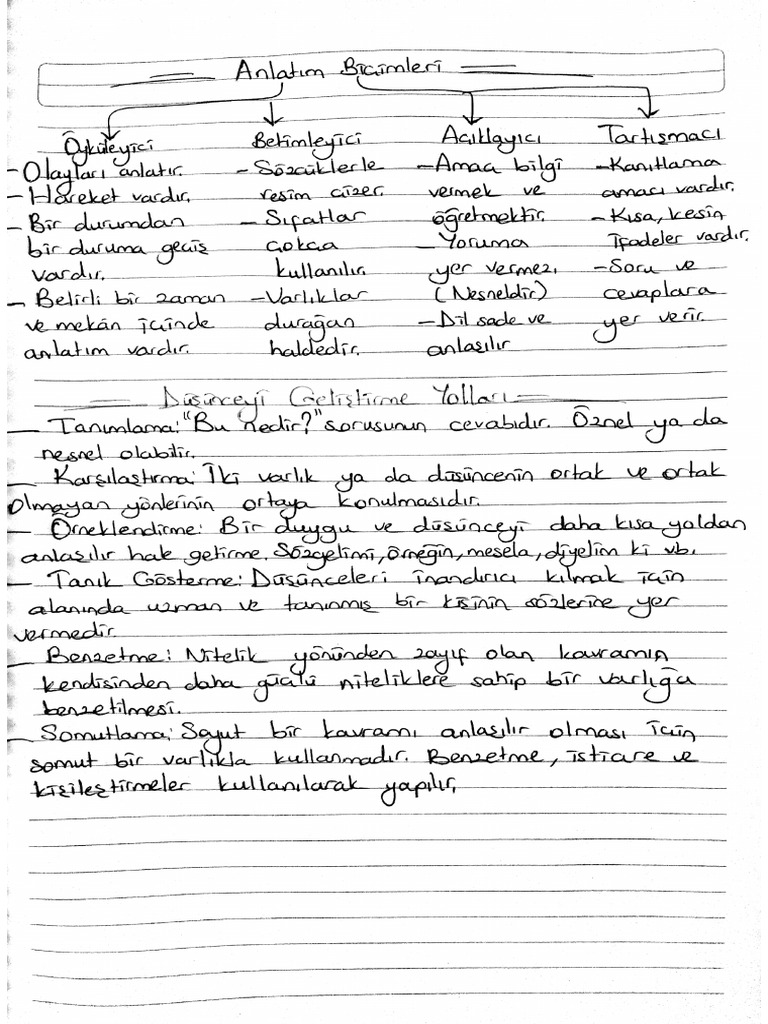 Anlatım Biçimleri
Öyküleyici
- Olayları anlatır.
- Hareket vardır.
- Bir durumdan
bir duruma geçiş
vardır.
- Belirli bir zaman
ve mekân içinde
anlatım vardır.
Betimleyici
- Sözcüklerle
resim çizer.
- Sıfatlar
çokça
kullanılır.
- Varlıklar
durağan
haldedir.
Açıklayıcı
- Amaç bilgi
vermek ve
öğretmektir.
- Yoruma
yer vermez.
(Nesneldir)
- Dil sade ve
anlaşılır
Tartışmacı
- Kanıtlama
amacı vardır.
- Kısa, kesin
ifadeler vardır.
- Soru ve
cevaplara
yer verir.
Düşünceyi Geliştirme Yolları
- Tanımlama: "Bu nedir?" sorusunun cevabıdır. Öznel ya da
nesnel olabilir.
- Karşılaştırma: İki varlık ya da düşüncenin ortak ve ortak
olmayan yönlerinin ortaya konulmasıdır.
- Örneklendirme: Bir duygu ve düşünceyi daha kısa yoldan
anlaşılır hak getirme. Sözgelimi, örneğin, mesela, diyelim ki vb.
- Tanık Gösterme: Düşünceleri inandırıcı kılmak için
alanında uzman ve tanınmış bir kişinin sözlerine yer
vermedir.
- Benzetme: Nitelik yönünden zayıf olan kavramın
kendisinden daha güçlü niteliklere sahip bir varlığa
benzetilmesi.
- Somutlama: Soyut bir kavramı anlaşılır olması için
somut bir varlıkla kullanmadır. Benzetme, istiare ve
kişileştirmeler kullanılarak yapılır.